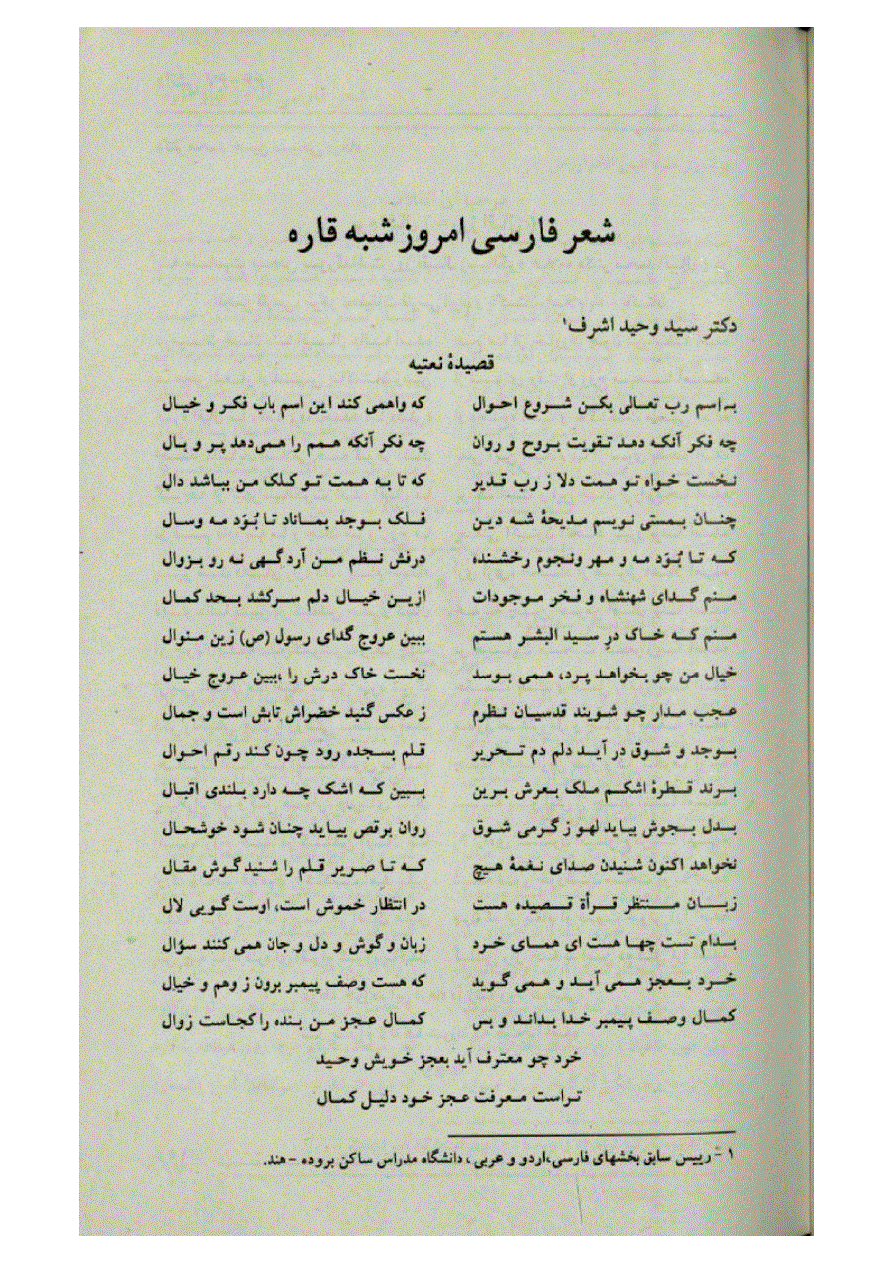 شعر فارسی امروز شبه قاره
دکتر سید وحید اشرف۱
قصیدهٔ نعتیه
به اسم رب تعالی بکن شروع احوال    که واهمی کند این اسم باب فکر و خیال
چه فکر آنکه دهد تقویت بروح و روان    چه فکر آنکه همم را همی‌دهد پر و بال
نخست خواه تو همت دلا ز رب قدیر    که تا به همت تو کلک من بباشد دال
چنان بمستی نویسم مدیحهٔ شه دین    فلک بوجد بماناد تا بُوَد مه وسال
که تا بُوَد مه و مهر ونجوم رخشنده    درفش نظم من آرد گهی نه رو بزوال
منم گدای شهنشاه و فخر موجودات    ازین خیال دلم سرکشد بحد کمال
منم که خاک درِ سید البشر هستم    ببین عروج گدای رسول (ص) زین منوال
خیال من چو بخواهد پرد، همی بوسد    نخست خاک درش را ،ببین عروج خیال
عجب مدار چو شویند قدسیان نظرم    ز عکس گنبد خضراش تابش است و جمال
بوجد و شوق در آید دلم دم تحریر    قلم بسجده رود چون کند رقم احوال
برند قطرهٔ اشکم ملک بعرش برین    ببین که اشک چه دارد بلندی اقبال
بدل بجوش بیاید لهو ز گرمی شوق    روان برقص بیاید چنان شود خوشحال
نخواهد اکنون شنیدن صدای نغمهٔ هیچ    که تا صریر قلم را شنید گوش مقال
زبان منتظر قرأة قصیده هست    در انتظار خموش است، اوست گویی لال
بدام تست چها هست ای همای خرد    زبان و گوش و دل و جان همی کنند سؤال
خرد بعجز همی آید و همی گوید    که هست وصف پیمبر برون ز وهم و خیال
کمال وصف پیمبر خدا بداند و بس    کمال عجز من بنده را کجاست زوال
خرد چو معترف آید بعجز خویش وحید
تراست معرفت عجز خود دلیل کمال
۱ - رییس سابق بخشهای فارسی،اردو و عربی ، دانشگاه مدراس ساکن بروده - هند.